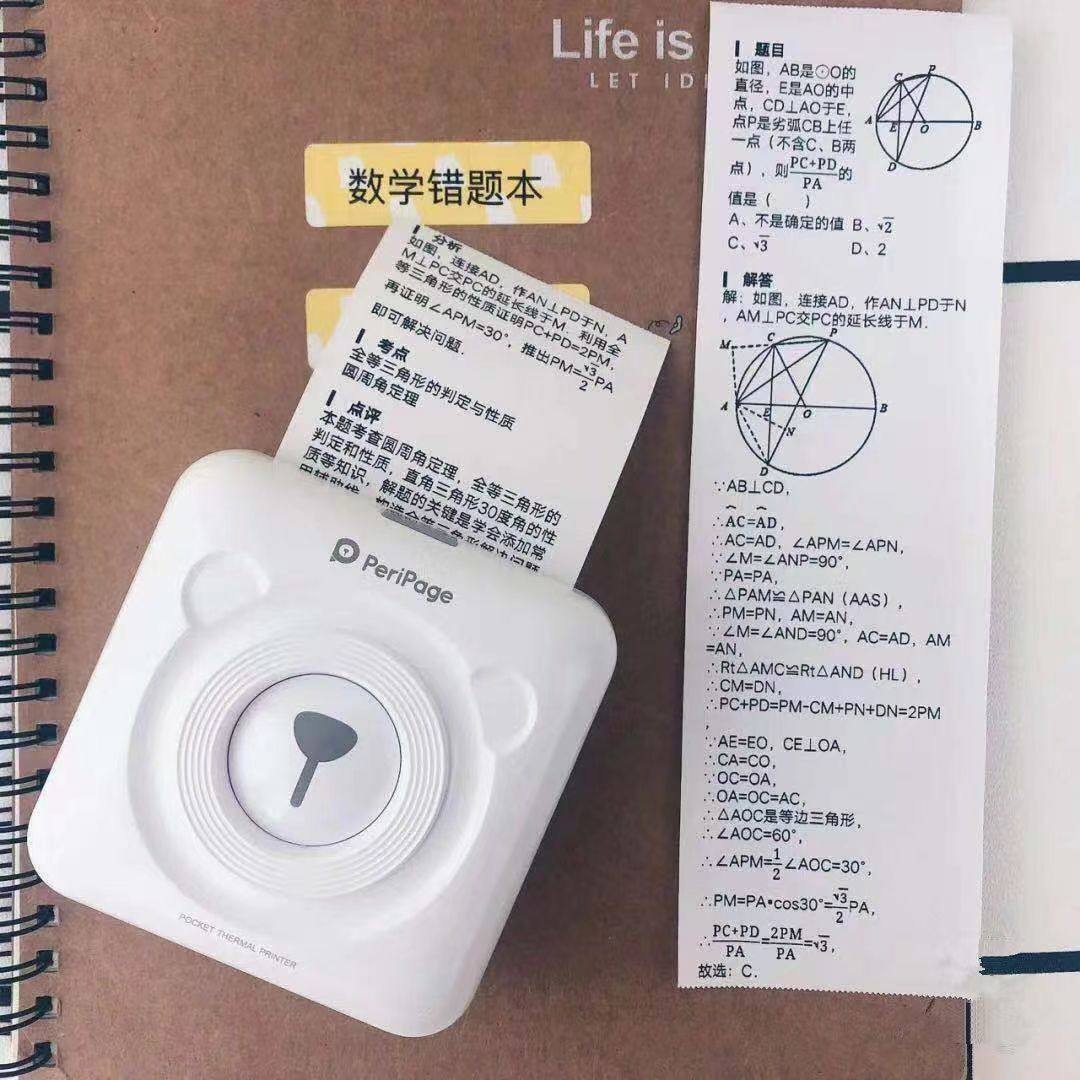 Life is
LET ID
数学错题本
分析
如图，连接AD，作AN⊥PD于N，A
M⊥PC交PC的延长线于M．利用全
等三角形的性质证明PC+PD=2PM，
再证明∠APM=30°，推出PM=√3/2PA
即可解决问题．
考点
全等三角形的判定与性质
圆周角定理
点评
本题考查圆周角定理，全等三角形的
判定和性质，直角三角形30度角的性
质等知识，解题的关键是学会添加常
PeriPage
POCKET THERMAL PRINTER
题目
如图，AB是⊙O的
直径，E是AO的中
点，CD⊥AO于E，
点P是劣弧CB上任
一点（不含C、B两
点），则PC+PD/PA的
值是（　　）
A、不是确定的值 B、√2
C、√3 D、2
C P
A E O B
D
解答
解：如图，连接AD，作AN⊥PD于N
，AM⊥PC交PC的延长线于M．
M C P
A E O B
N
D
∵AB⊥CD，
∴A͡C=A͡D，
∴AC=AD，∠APM=∠APN，
∵∠M=∠ANP=90°，
∵PA=PA，
∴△PAM≌△PAN（AAS），
∴PM=PN，AM=AN，
∵∠M=∠AND=90°，AC=AD，AM
=AN，
∴Rt△AMC≌Rt△AND（HL），
∴CM=DN，
∴PC+PD=PM-CM+PN+DN=2PM
，
∵AE=EO，CE⊥OA，
∴CA=CO，
∵OC=OA，
∴OA=OC=AC，
∴△AOC是等边三角形，
∴∠AOC=60°，
∴∠APM=1/2∠AOC=30°，
∴PM=PA•cos30°=√3/2PA，
∴PC+PD/PA=2PM/PA=√3，
故选：C．